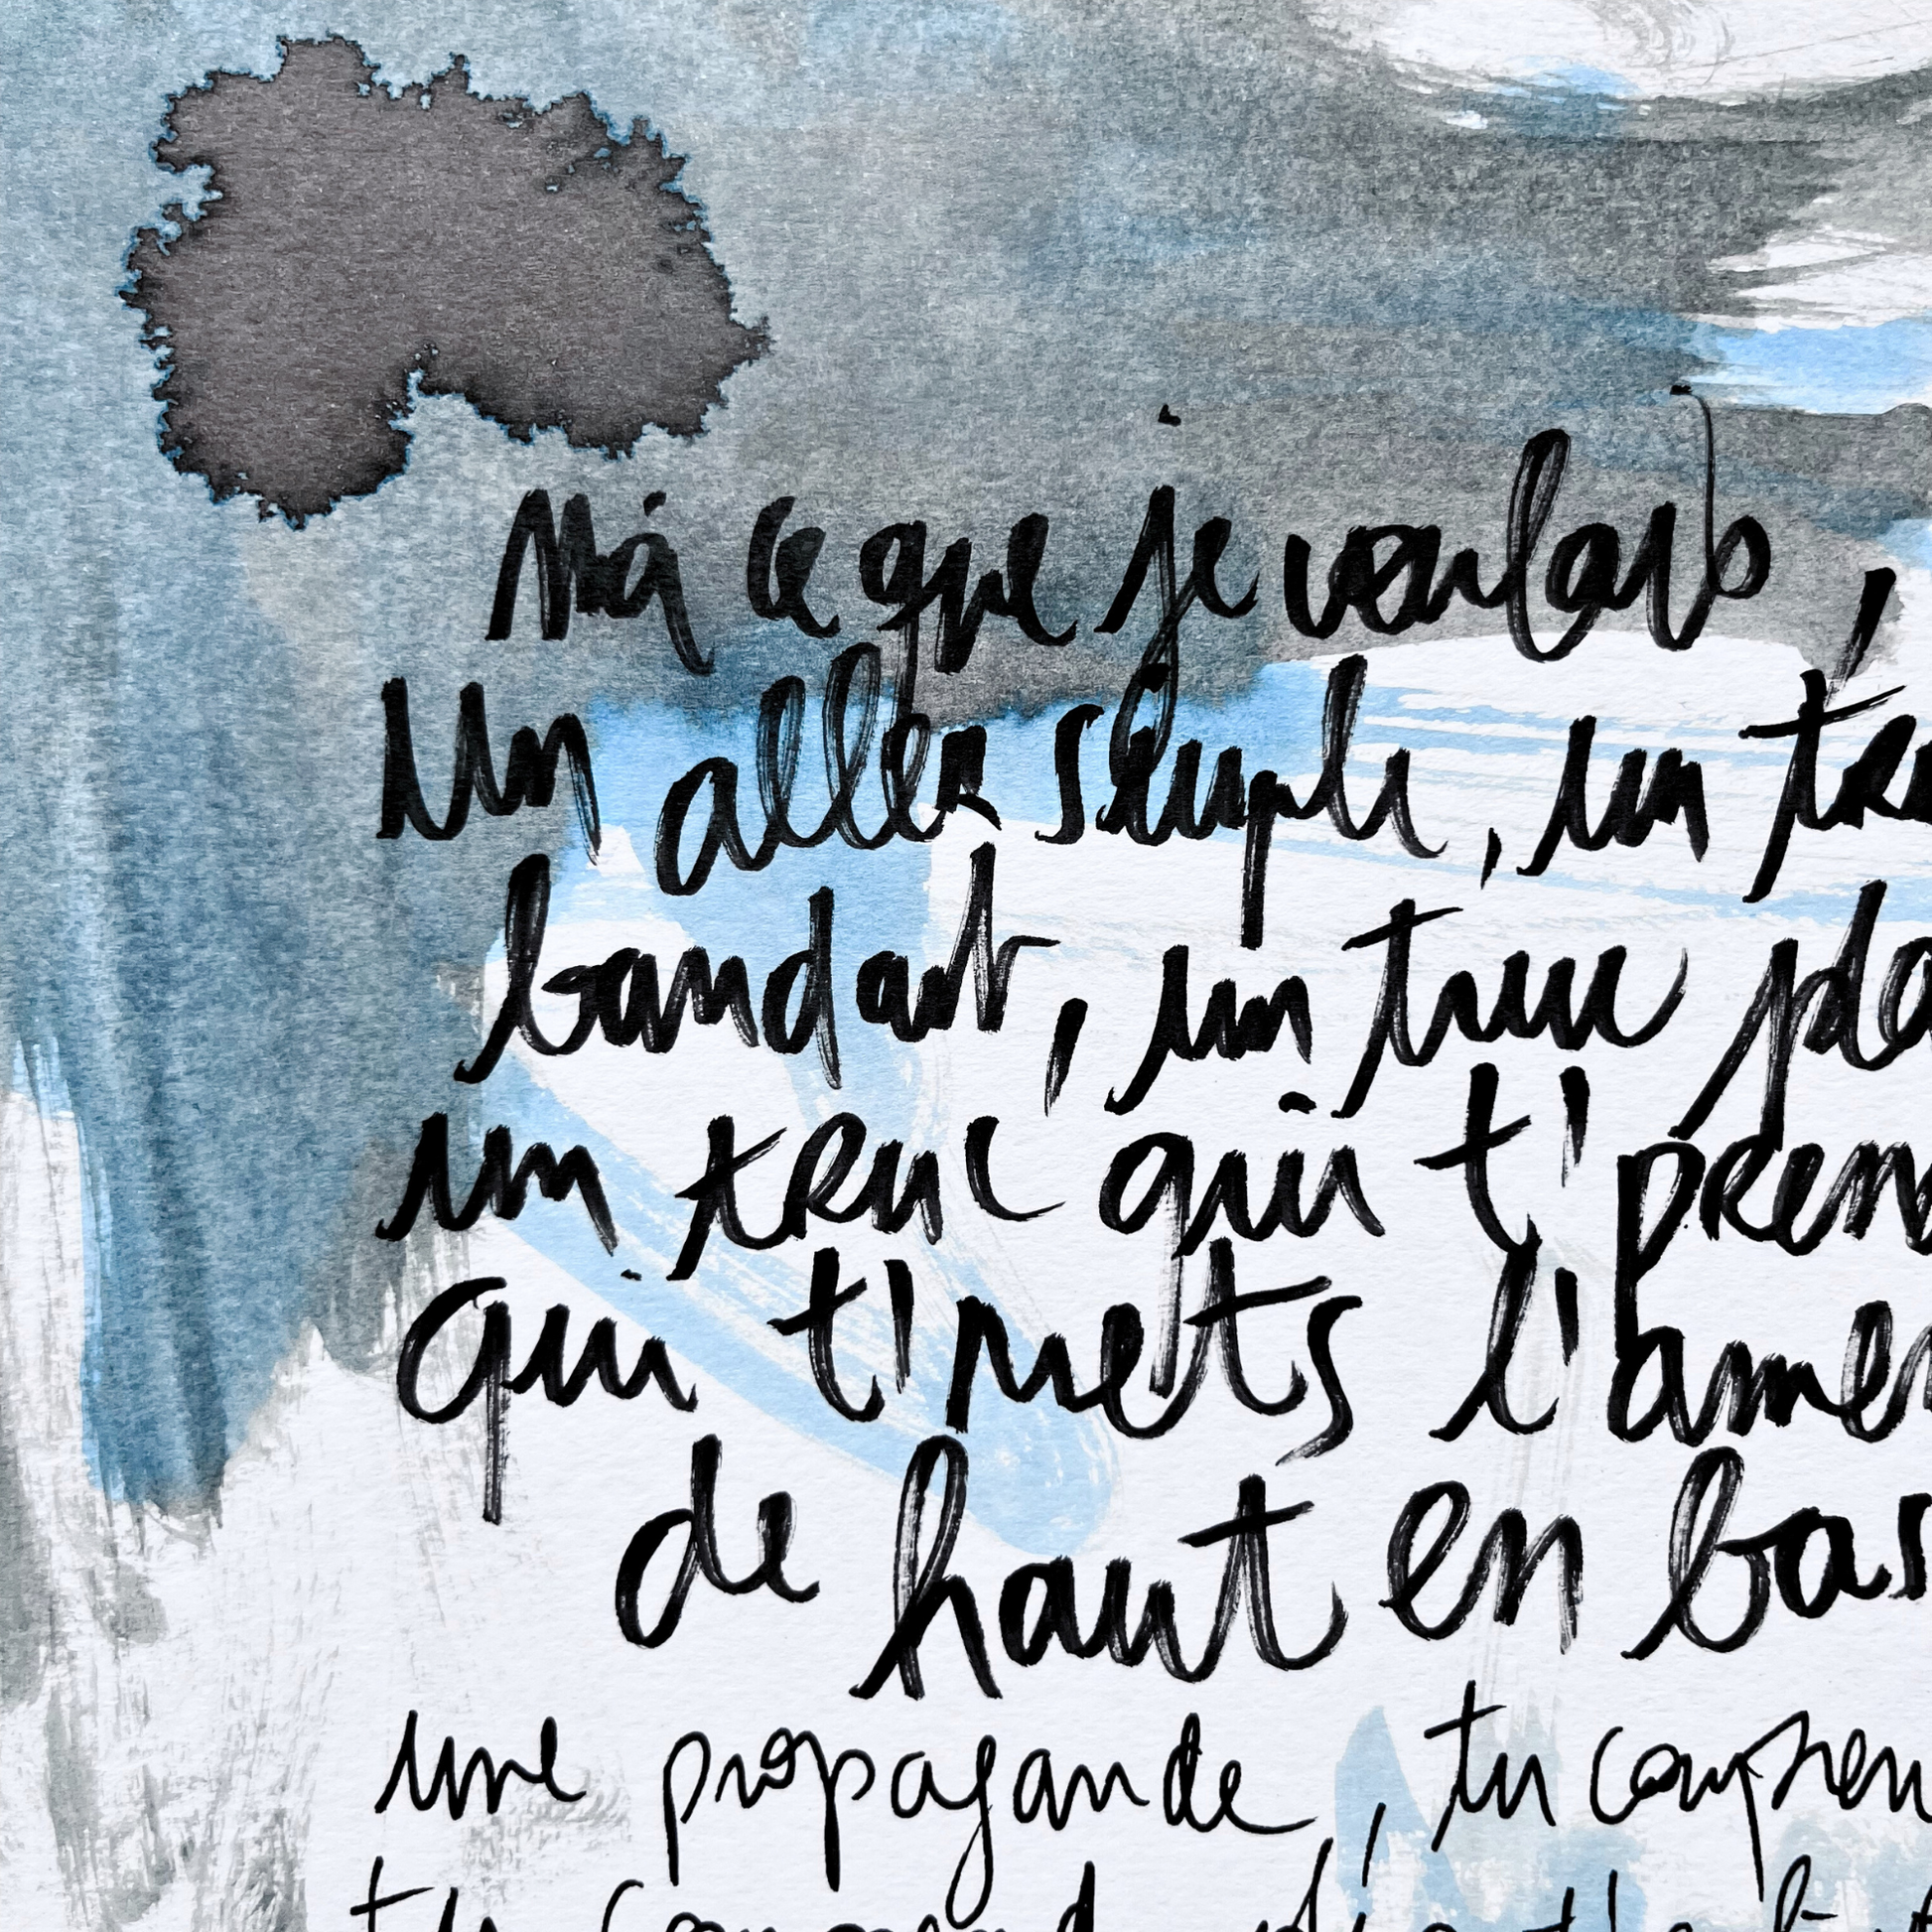 Moi ce que je voulais
Un aller simple, un tru
bandant, un truc pla
un truc qui t'pren
qui t'mets l'amer
de haut en bas
une propagande, tu compren
tu